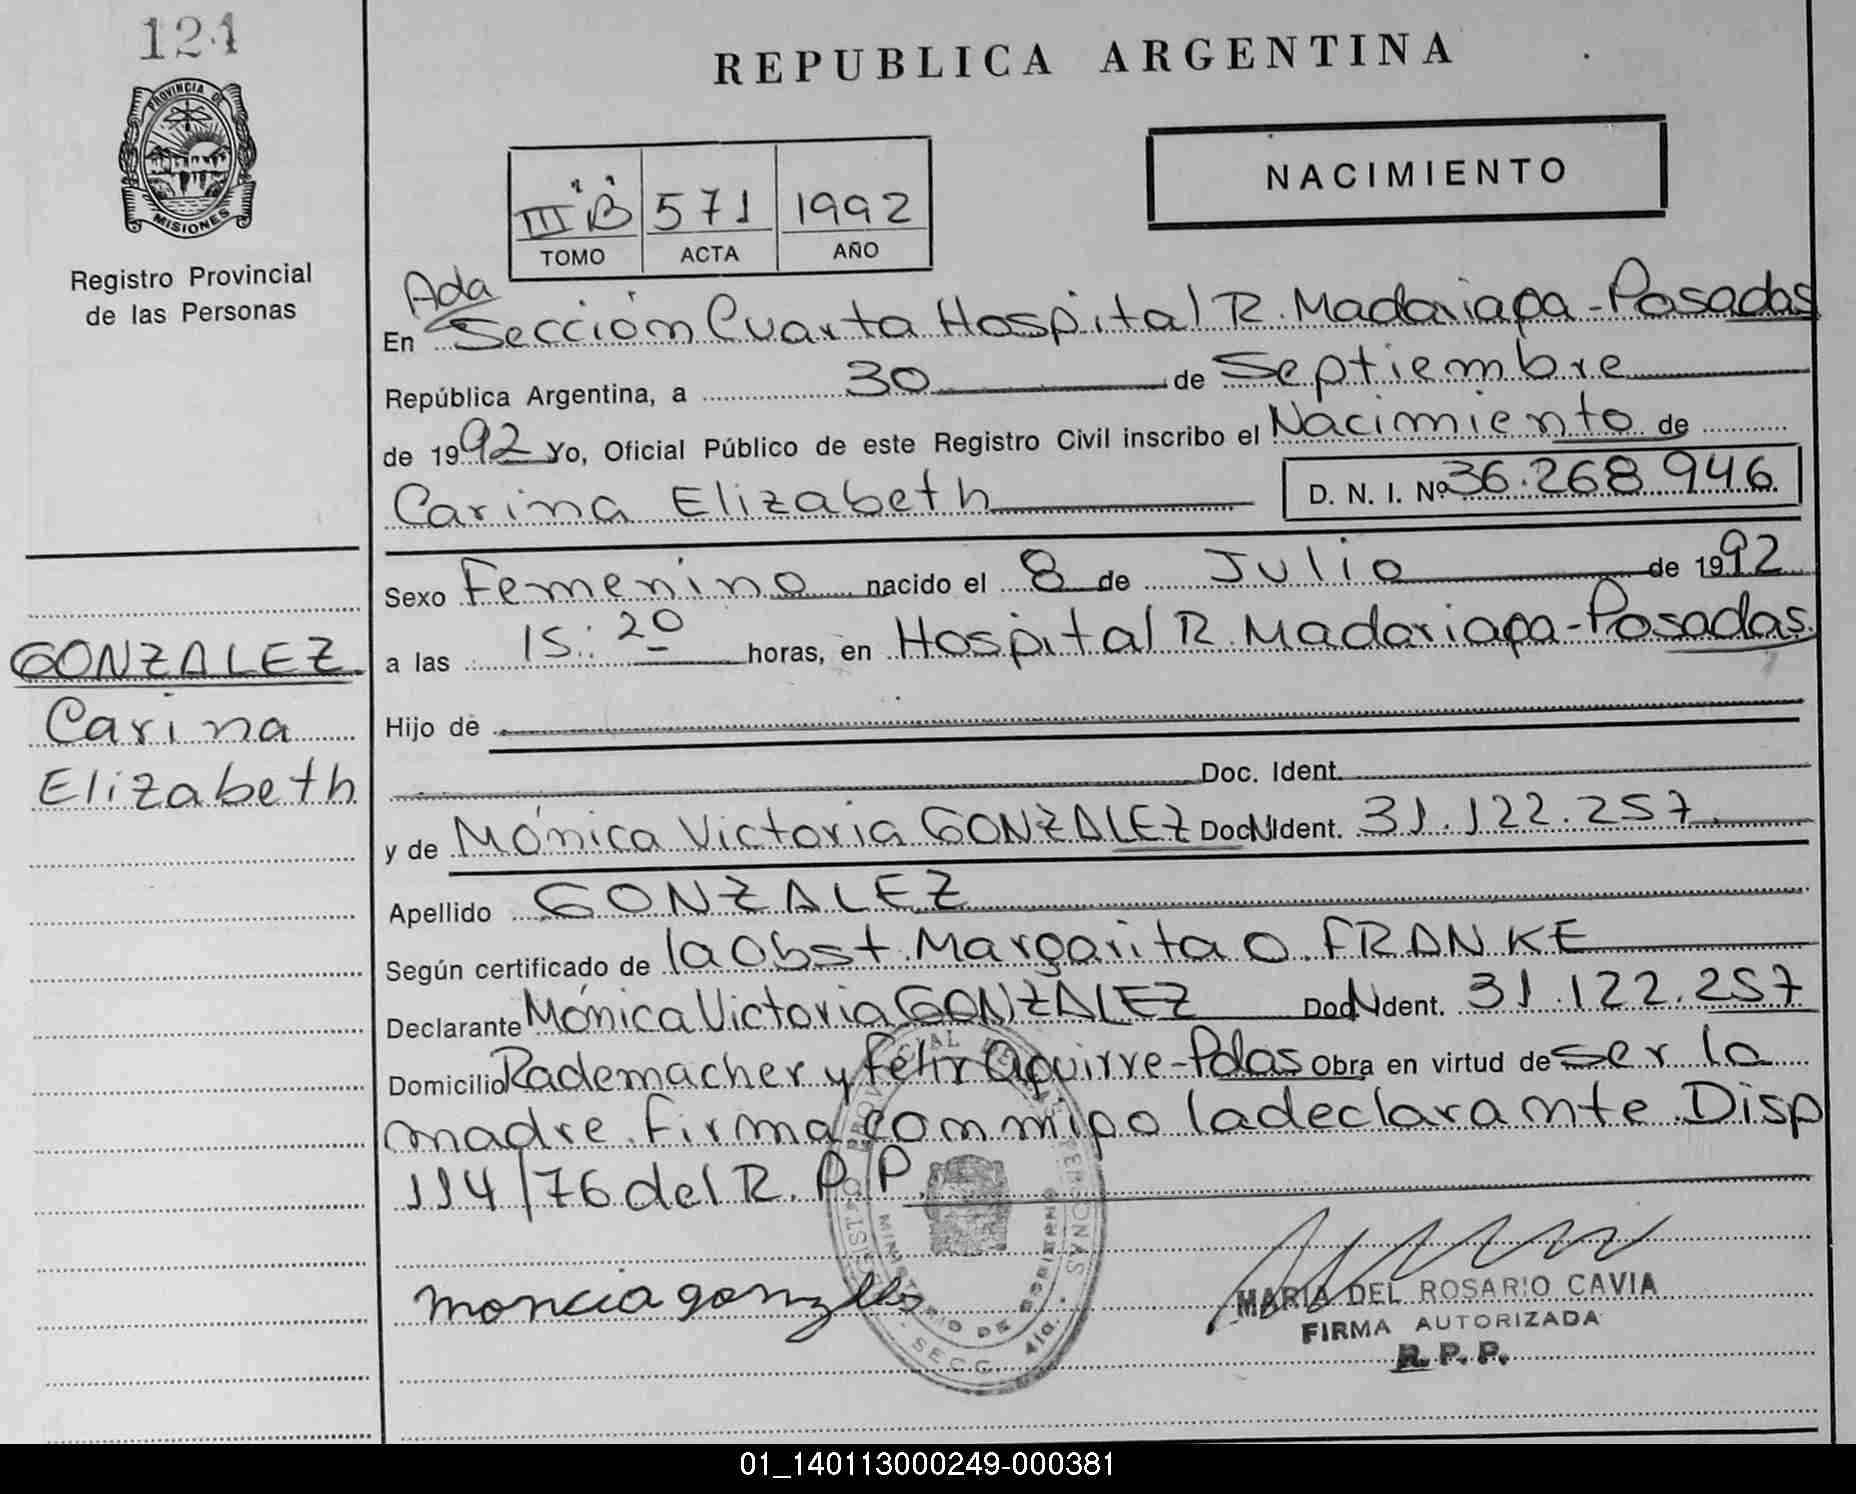 124
PROVINCIA DE
MISIONES
Registro Provincial
de las Personas
REPUBLICA ARGENTINA
NACIMIENTO
III "B" 571 1992
TOMO ACTA AÑO
Ada
En Sección Cuarta Hospital R. Madariaga - Posadas
República Argentina, a 30 de Septiembre
de 1992 Yo, Oficial Público de este Registro Civil inscribo el Nacimiento de
Carina Elizabeth D. N. I. Nº 36.268.946
Sexo Femenino nacido el 8 de Julio de 1992
a las 15:20 horas, en Hospital R. Madariaga - Posadas.
GONZALEZ
Carina
Elizabeth
Hijo de
Doc. Ident.
y de Mónica Victoria GONZALEZ Doc N Ident. 31.122.257.
Apellido GONZALEZ
Según certificado de la Obst. Margarita O. FRANKE
Declarante Mónica Victoria GONZALEZ Doc N Ident. 31.122.257
Domicilio Rademacher y Félix Aguirre - Pdas Obra en virtud de ser la
madre. Firma conmigo la declarante. Disp
114/76 del R. P. P.
moncia gonzlls
MINISTERIO DE GOBIERNO
SECC. 4ta.
MARIA DEL ROSARIO CAVIA
FIRMA AUTORIZADA
R. P. P.
01_140113000249-000381